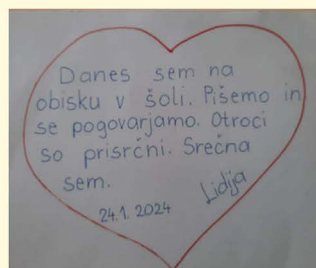 Danes sem na
obisku v šoli. Pišemo in
se pogovarjamo. Otroci
so prisrčni. Srečna
sem.
Lidija
24.1. 2024